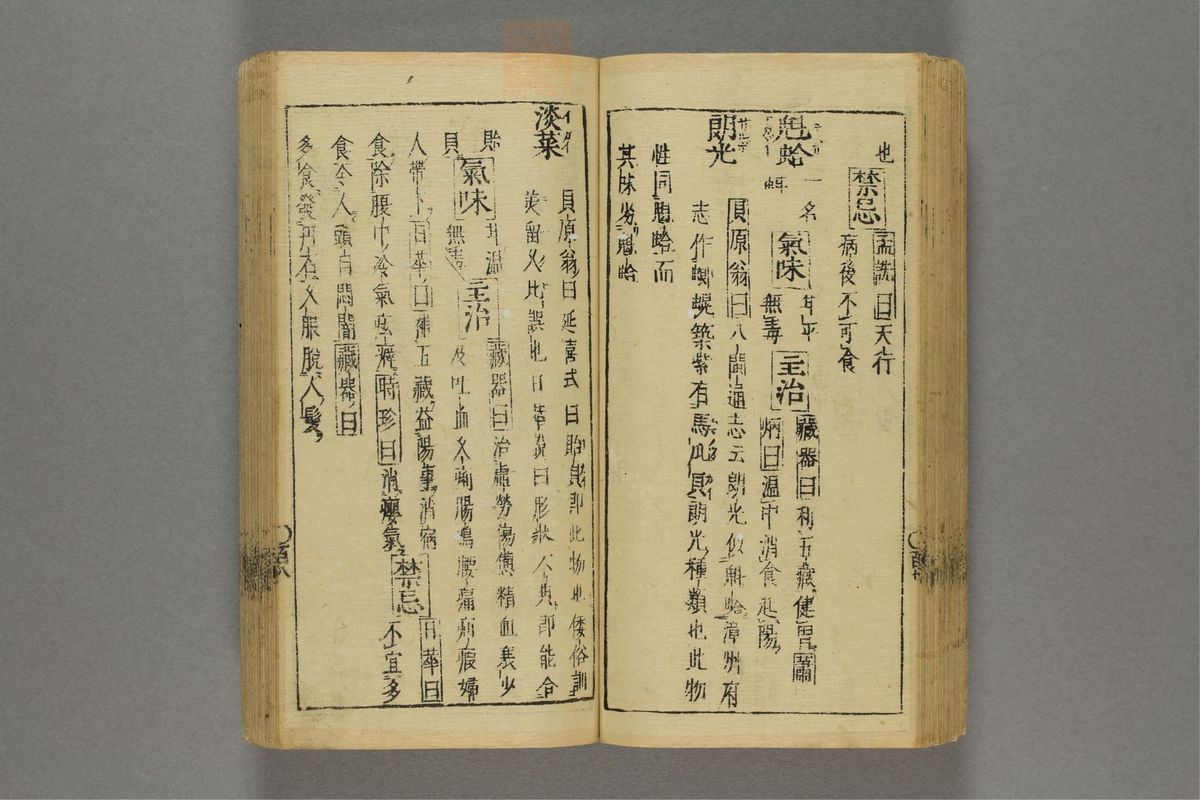 也
禁忌 孟詵曰天行
病後不可食
魁蛤 一名
氣味 甘平
無毒
主治 藏器曰利五藏健胃 蕭
炳曰温中消食起陽
朗光
貝原翁曰八閩通志云朗光似魁蛤漳州府
志作 築紫有馬 貝朗光種類也此物
性同魁蛤而
其味劣魁蛤
淡菜 イガイ
貝原翁曰延喜式曰貽貝即此物也倭俗訓
美留又比誤也日華說曰形狀不典即能合
貽貝
氣味 甘温
無毒
主治 藏器曰治虛勞傷憊精血衰少
及吐血久痢腸鳴腰痛疝瘕婦
人帶下 日華曰補五藏益陽事消宿
食除腰中冷氣痃癖 時珍曰消癭氣
禁忌 日華曰
不宜多
食令人頭目悶闇 藏器曰
多食發丹石又脫人髮